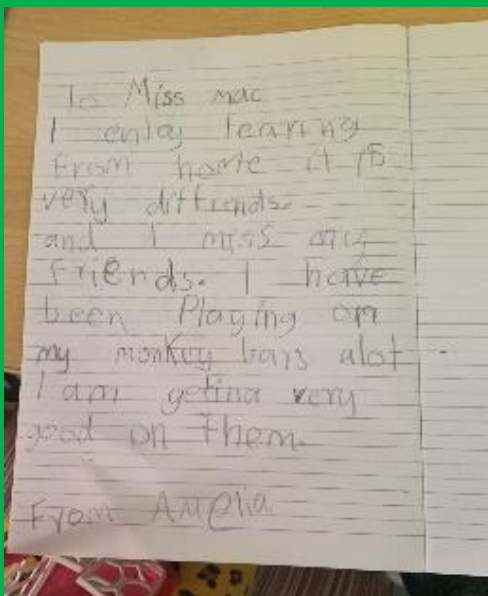 To Miss mac
I enjoy learing
from home it is
very diffrends.
and I miss my
friends. I have
been Playing on
my monkey bars alot
I am geting very
good on them.
From Amelia